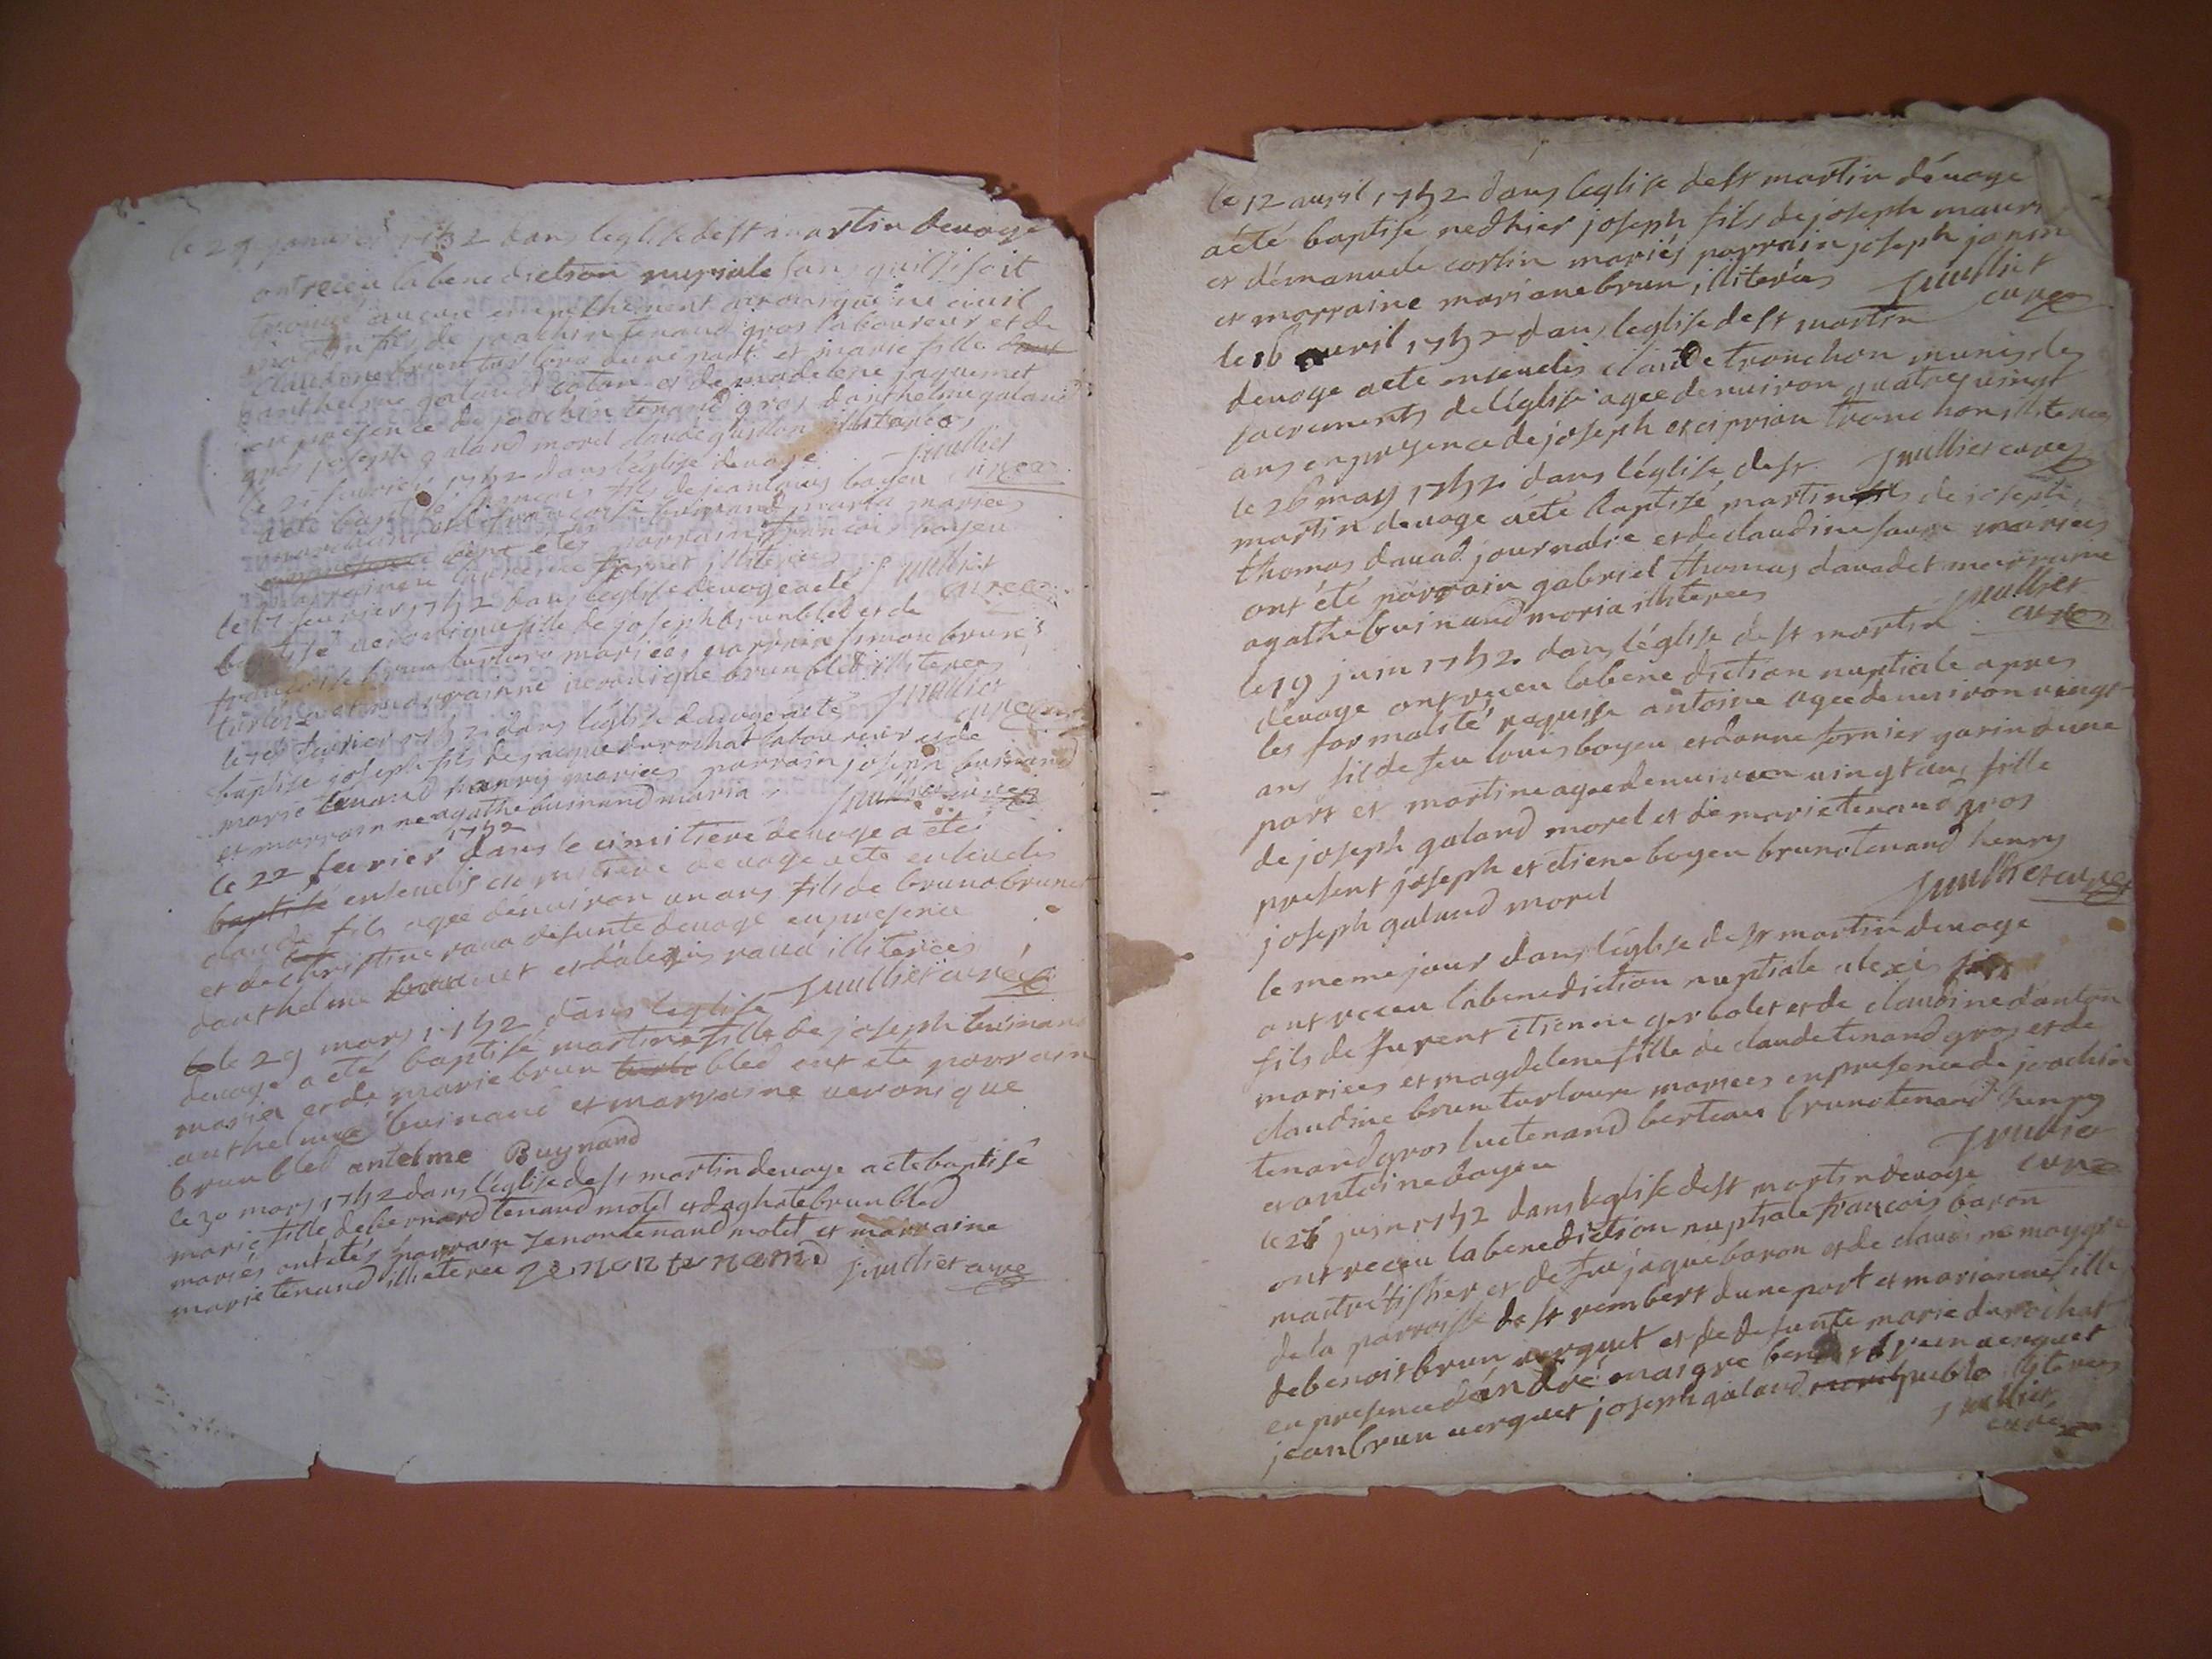 le 29 janvier 1752 dans leglise de st martin devoge
ont receu la benediction nupsiale sans quil si soit
trouvé aucun empechement canonique ni civil
martin fils de joachin tenand gros laboureur et de
claudine brun turlora dune part et marie fille
danthelme galand cotan et de madelene jaquemet
en presence de joachin tenand gros danthelme galand
gros joseph galand morel claude illiterees
juullier
curez
le 2 feuvrier 1752 dans leglise devoge
acté baptisé francois fils de jean louis bogeu
marchand et francoise buinand maria mariees
parrain francois bogeu
marrainne illiterees
juullier
curez
le 17 feuvrier 1752 dans leglise devoge acté
baptisé veronique fille de joseph brunbled et de
francoise brun turluro mariées parrain simon brun
turlora et marrainne veronique brunbled illiterees
juullier
curez
le fevrier 1752 dans léglise devoge acté
baptise joseph fils de jacque durochat laboureur et de
marie tenand henry mariees parrain joseph buinand
et marrainne agathe buinand maria
juullier curez
1752
le 22 fevrier dans le cimitiere devoge a été
baptisé ensevelis cimitiere devoge acté ensevelis
claude fils agée dénviron un ans fils de bruno brunet
et de christine rava defunte devoge en presence
danthelme brunet et dalexis rava illiterées
juullier curéz
le 29 mars 1752 dans leglise
devoge acté baptisé martine fille de joseph buinand
maria et de marie brun bled ont eté parrain
anthelme buinand et marraine veronique
brunbled antelme Buynand
le 30 mars 1752 dans léglise de st martin devoge acté baptisé
marie fille de bernard tenand motel et daghate brunbled
mariés ont etés parrain zenon tenand motet et marraine
marie tenand illieteree zenon tenand juullier curez
le 12 avril 1752 dans leglise de st martin dévoge
acté baptisé né dhier joseph fils de joseph mauris
et démanuele corlin mariés parrain joseph janin
et marraine mariane brun illiterées juullier
curez
le 16 avril 1752 dans leglise de st martin
devoge acté ensevelis claude tronchon munis des
sacrements de léglise agée denviron quatre vingt
ans en presence de joseph et ciprian tronchon illiterees
juullier curez
le 26 may 1752 dans léglise de st
martin devoge aété baptizé martin fils de joseph
thomas davad journalié et de claudine favre mariees
ont été parrain gabriel thomas davad et marraine
agathe buinand maria illiterees
juullier
curez
le 19 juin 1752 dans léglise de st martin
devoge ont receu la bene diction nuptiale apres
les formalité requise antoine agée denviron vingt
ans fil de feu louis bogeu et danne fornier garin dune
part et martine agée denviron vingt ans fille
de joseph galand morel et de marie tenand gros
present joseph et etiene bogeu bruno tenand henry
joseph galand morel juullier curez
le meme jour dans léglise de st martin devoge
ont receu la benediction nuptiale alexis
fils de furent etienne gerbolet et de claudine danton
mariees et magdelene fille de claude tenand gros et de
claudine brun turloura mariees en presence de joachin
tenand gros luc tenand berteau bruno tenand henry
et antoine bogeu juullier
curez
le 26 juin 1752 dans léglise de st martin devoge
ont receu la benediction nuptiale francois baron
maitre tissier et de feu jaque baron et de claudine maygre
de la parroisse de st rembert dune part et marianne fille
de benoit brun verguet et de defunte marie durochat
en presence dándré maigre benoit brun verguet
jean brun verguet joseph galand morel illiterees
juullier
curez